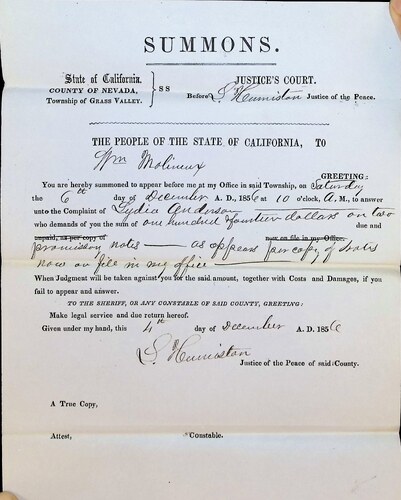 SUMMONS.
State of California.
COUNTY OF NEVADA,
Township of GRASS VALLEY.
SS
JUSTICE'S COURT.
Before S. Humiston Justice of the Peace.
THE PEOPLE OF THE STATE OF CALIFORNIA, TO
Wm Molineux
GREETING:
You are hereby summoned to appear before me at my Office in said Township, on Saturday
the 6th day of December A. D., 1856 at 10 o'clock, A. M., to answer
unto the Complaint of Lydia Anderson
who demands of you the sum of one hundred & fourteen dollars on two
due and
unpaid, as per copy of now on file in my Office.
promissory notes — as appears per copy of notes
now on file in my office
When Judgment will be taken against you for the said amount, together with Costs and Damages, if you
fail to appear and answer.
TO THE SHERIFF, OR ANY CONSTABLE OF SAID COUNTY, GREETING:
Make legal service and due return hereof.
Given under my hand, this 4th day of December A. D. 1856
S. Humiston
Justice of the Peace of said County.
A True Copy,
Attest, Constable.